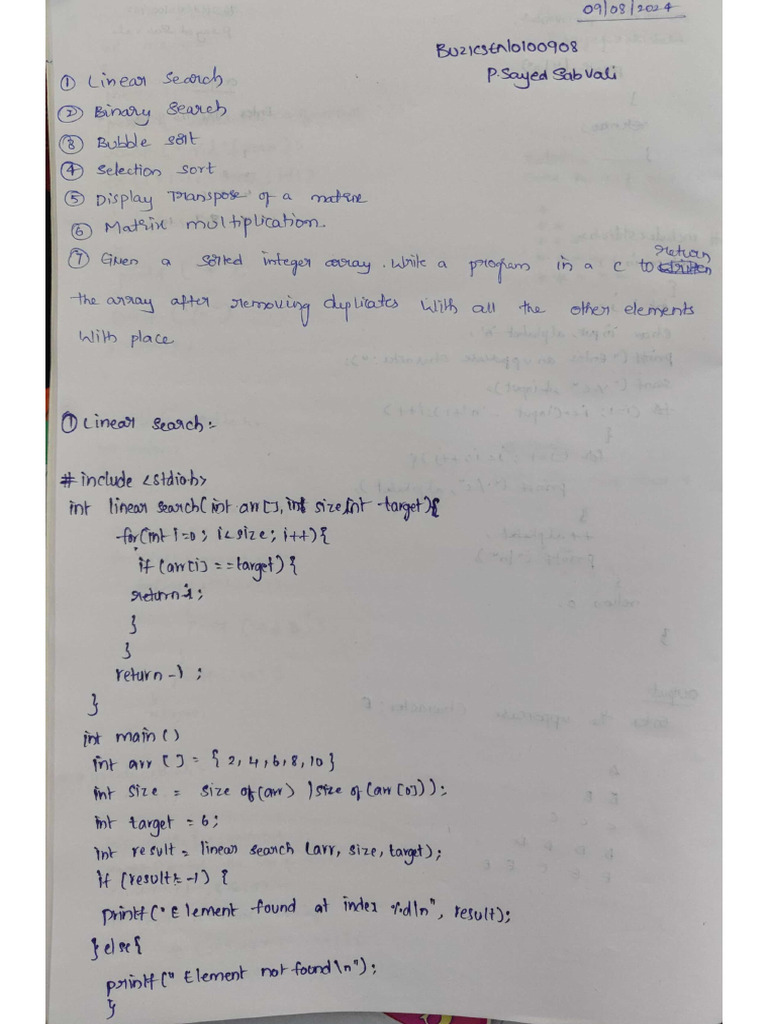 09/08/2024
BU21CSEN0100908
P. Sayed Sab Vali
① Linear Search
② Binary Search
③ Bubble sort
④ Selection sort
⑤ Display Transpose of a matrix
⑥ Matrix multiplication.
⑦ Given a sorted integer array. Write a program in a C to return
the array after removing duplicates with all the other elements
With place
① Linear Search:-
# include <stdio.h>
int linear search(int arr[], int size, int target){
for(int i=0; i<size; i++){
if (arr[i] ==target) {
return i;
}
}
return -1 ;
}
int main ()
int arr [] = { 2, 4, 6, 8, 10 }
int size = size of(arr) / size of (arr [0]));
int target = 6;
int result = linear search (arr, size, target);
if (result != -1) {
printf(" Element found at index %d\n", result);
} else {
printf(" Element not found \n");
}